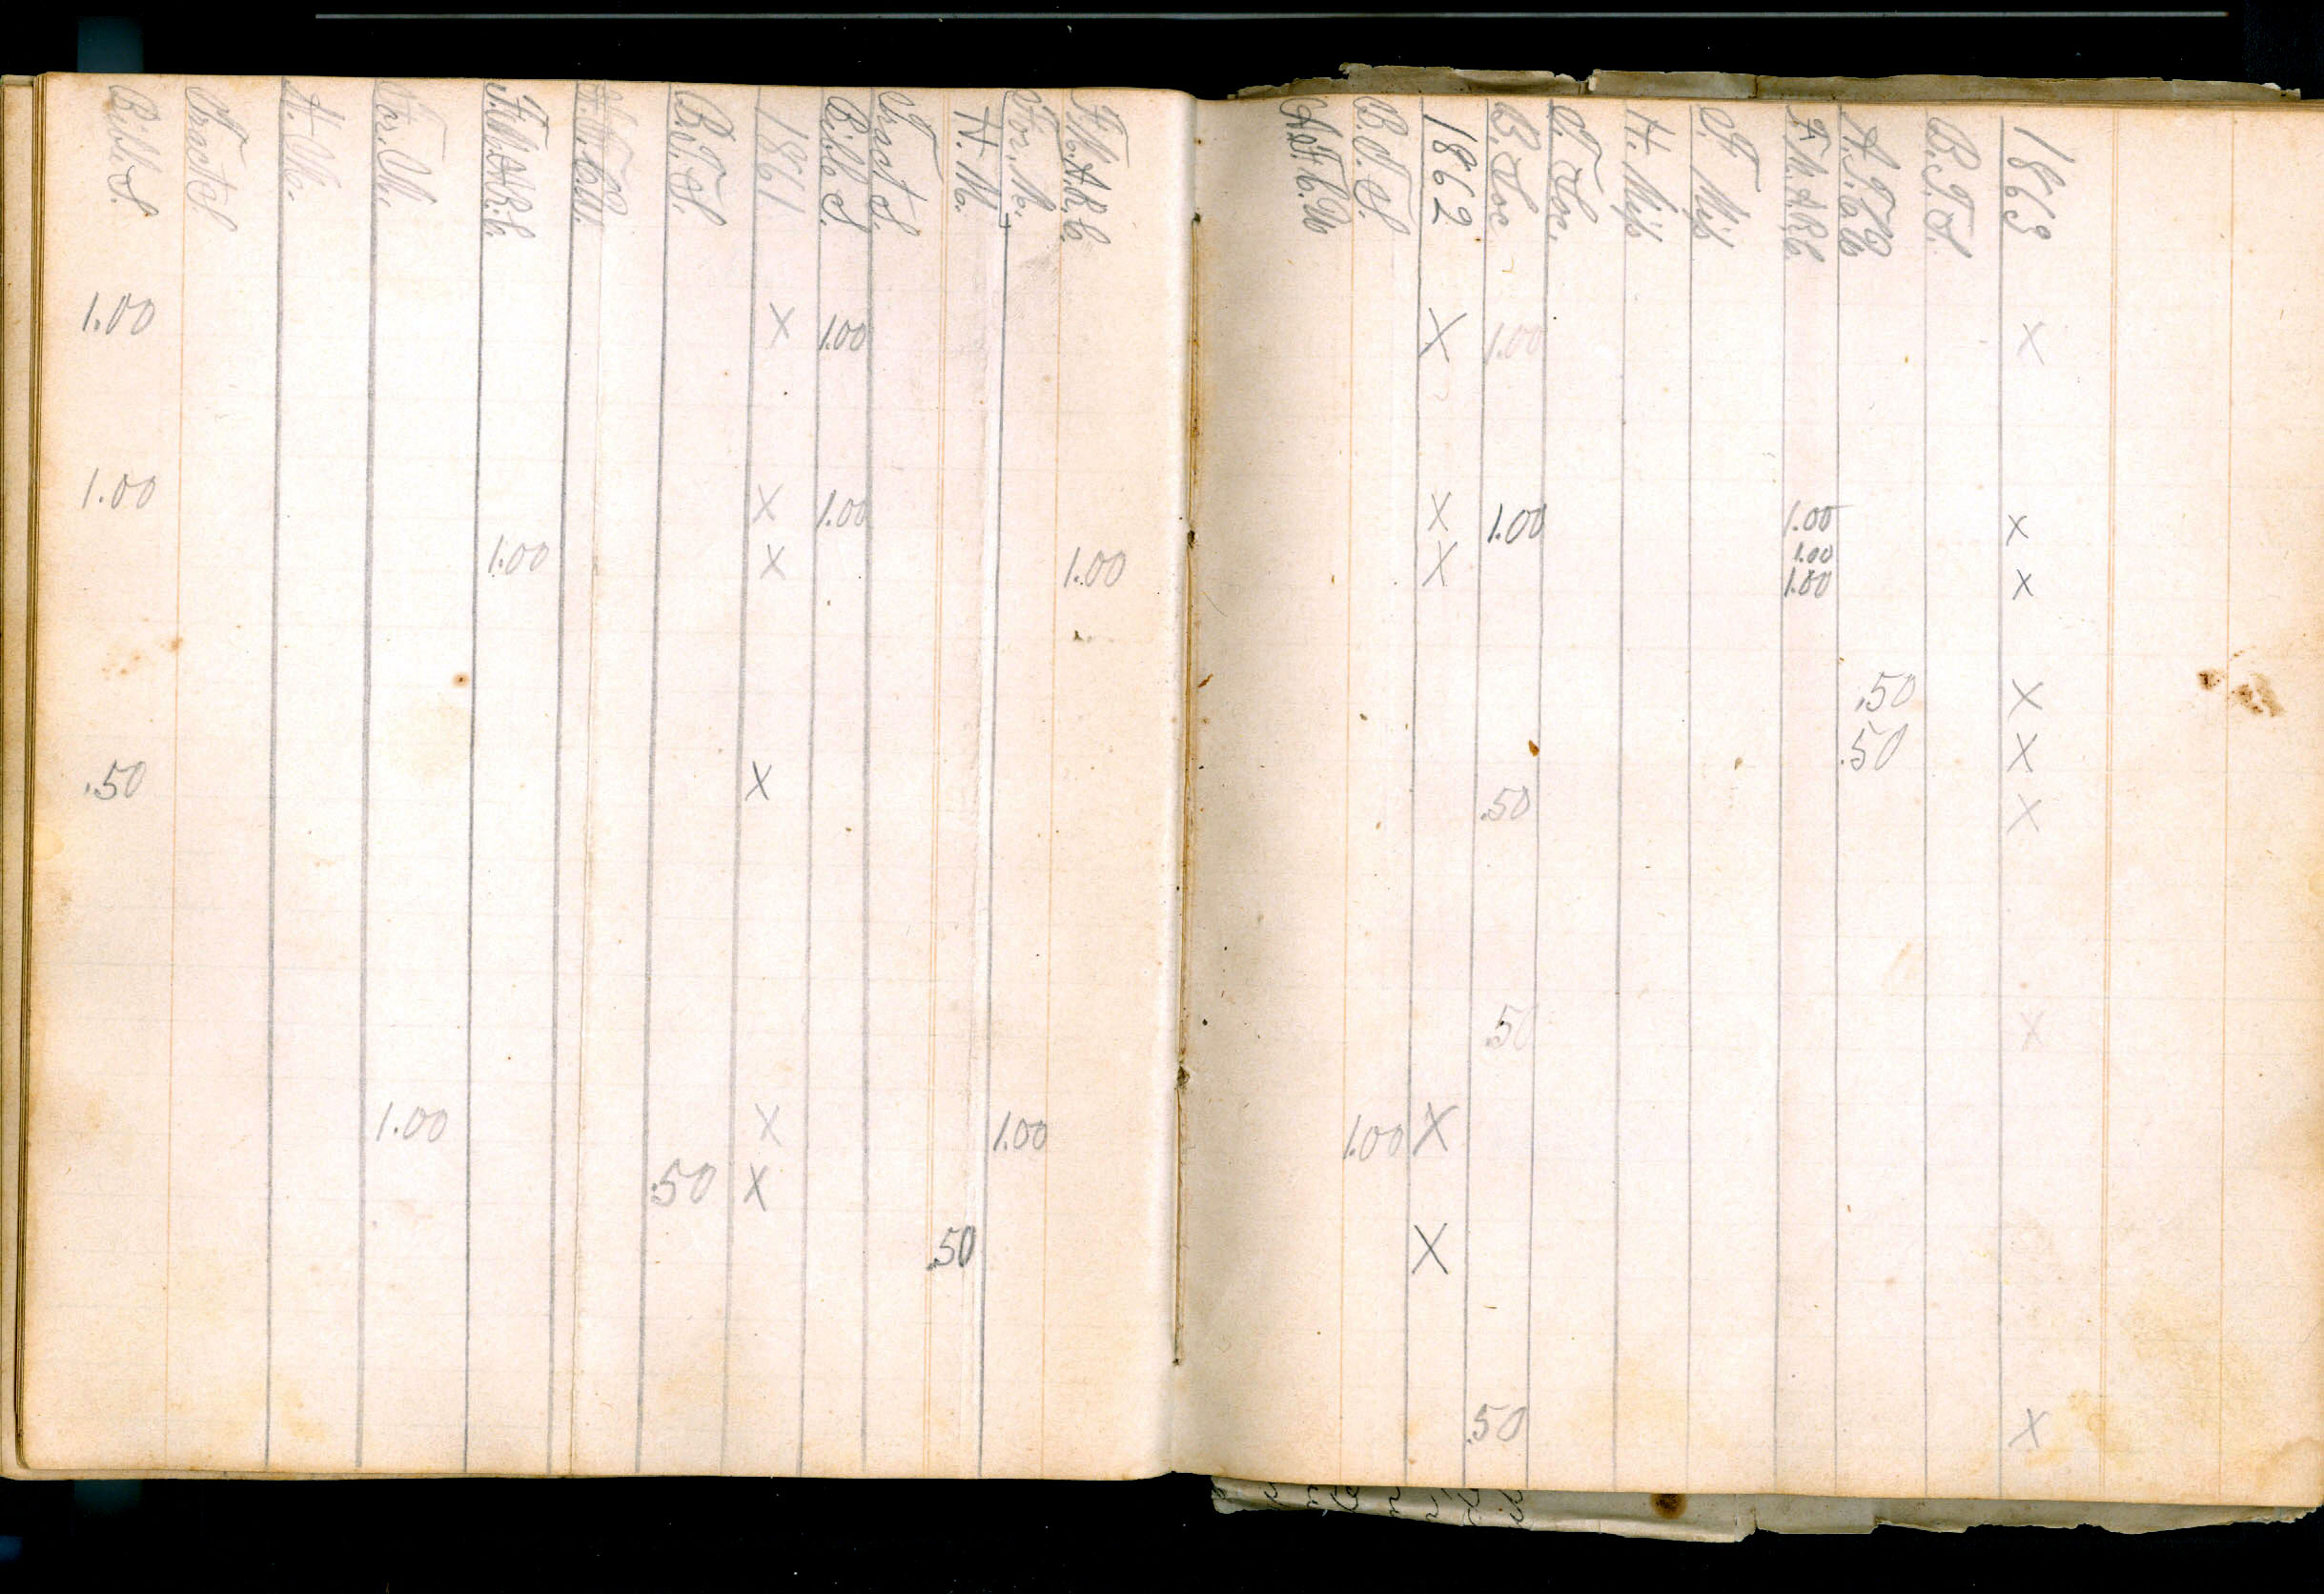 Bibl. S.
Tract S.
H. M.
For. M.
F.M.A.R.C.
B.T.S.
1861
Bibl S.
Tract S.
H. M.
For. M.
F.M.A.R.C.
1.00 X 1.00
1.00 X 1.00
1.00 X 1.00
.50 X
1.00 X 1.00
.50 X
.50
B.T.S.
1862
B. Soc.
T. Soc.
H. Miss
F. Miss
F.M.A.R.C.
B.T.S.
1863
X 1.00 X
X 1.00 1.00 X
1.00
X 1.00 X
.50 X
.50 X
.50 X
.50 X
1.00 X
X
.50 X